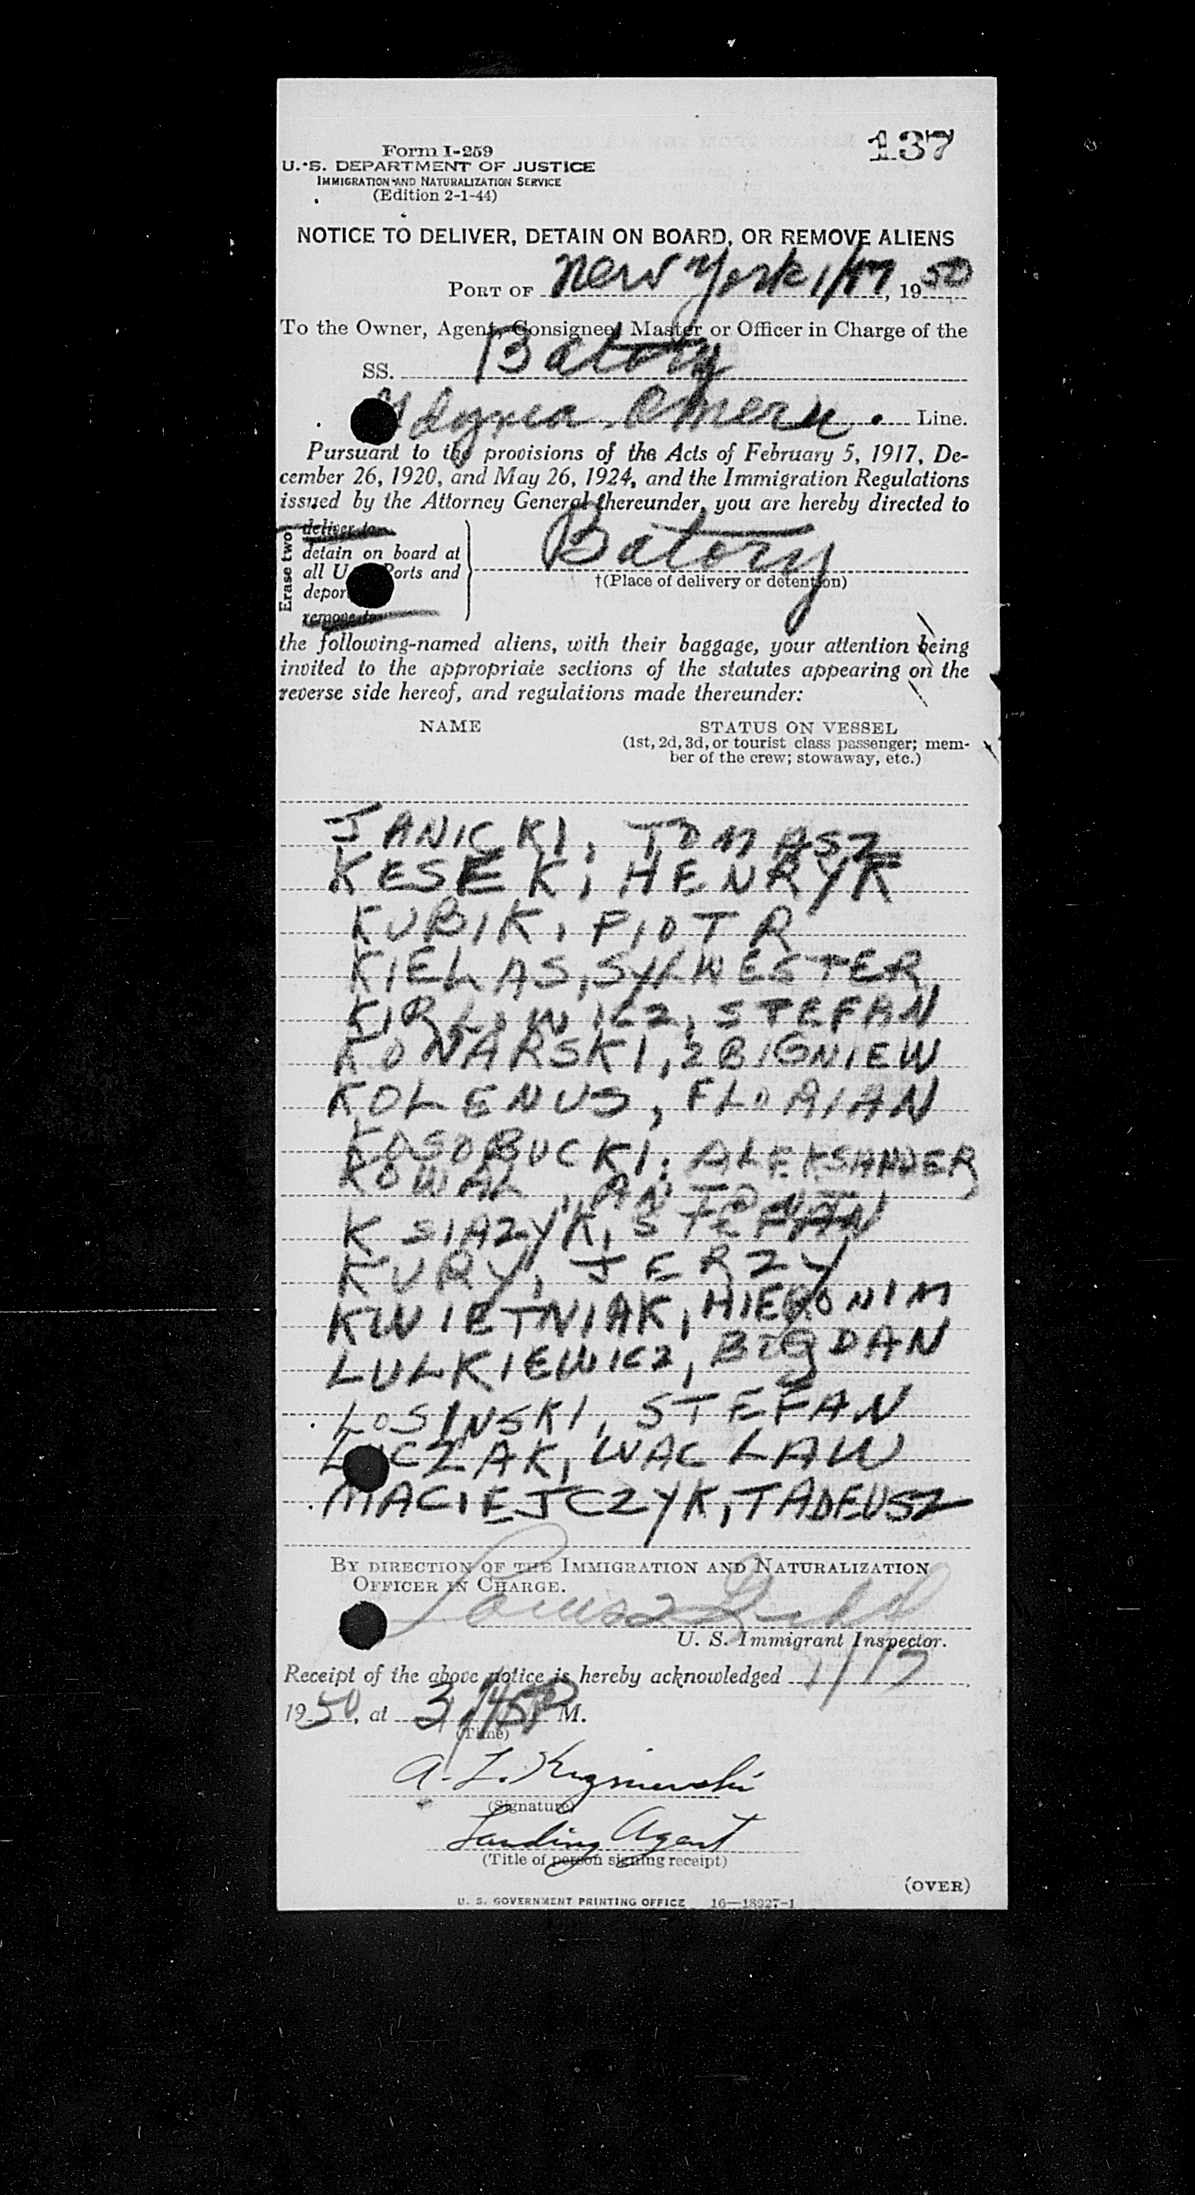 137
Form I-259
U. S. DEPARTMENT OF JUSTICE
IMMIGRATION AND NATURALIZATION SERVICE
(Edition 2-1-44)
NOTICE TO DELIVER, DETAIN ON BOARD, OR REMOVE ALIENS
PORT OF New York 1/17, 1950
To the Owner, Agent, Consignee, Master or Officer in Charge of the
SS. Batory
Gdynia Amer. Line.
Pursuant to the provisions of the Acts of February 5, 1917, De-
cember 26, 1920, and May 26, 1924, and the Immigration Regulations
issued by the Attorney General thereunder, you are hereby directed to
Erase two
deliver to
detain on board at
all U. Ports and
depor
remove to
Batory
†(Place of delivery or detention)
the following-named aliens, with their baggage, your attention being
invited to the appropriate sections of the statutes appearing on the
reverse side hereof, and regulations made thereunder:
NAME STATUS ON VESSEL
(1st, 2d, 3d, or tourist class passenger; mem-
ber of the crew; stowaway, etc.)
JANICKI, TOMASZ
KESEK, HENRYK
KUBIK, PIOTR
KIELAS, SYLWESTER
KIRLIWICZ, STEFAN
KONARSKI, ZBIGNIEW
KOLENUS, FLORIAN
KOSOBUCKI, ALEKSANDER
KOWAL, ANTONI
KSIAZYK, STEFAN
KURY, JERZY
KWIETNIAK, HIERONIM
LULKIEWICZ, BOGDAN
LOSINSKI, STEFAN
LUCZAK, WACLAW
MACIEJCZYK, TADEUSZ
BY DIRECTION OF THE IMMIGRATION AND NATURALIZATION
OFFICER IN CHARGE.
U. S. Immigrant Inspector.
Receipt of the above notice is hereby acknowledged 1/17
1950, at 3:45 P M.
(Time)
A. L.
(Signature)
Landing Agent
(Title of person signing receipt)
(OVER)
U. S. GOVERNMENT PRINTING OFFICE 16—18927-1